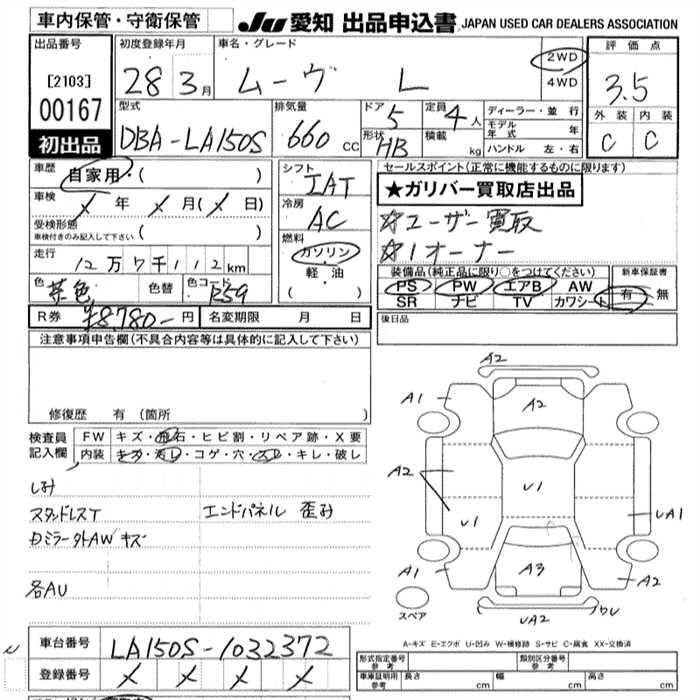 車内保管・守衛保管
JU 愛知 出品申込書 JAPAN USED CAR DEALERS ASSOCIATION
出品番号
[2103]
00167
初出品
初度登録年月
28 3月
車名・グレード
ムーヴ L
2WD
4WD
評価点
3.5
外装 内装
C C
型式
DBA-LA150S
排気量
660 CC
ドア 5
形状 HB
定員 4人
積載 kg
ディーラー・並行
モデル年式 年
ハンドル 左・右
車歴 自家用・( )
車検 年 月( 日)
受検形態
車検付きのみ記入して下さい ( )
走行
12万7千112km
色 茶色 色替 色コード P59
シフト
IAT
冷房
AC
燃料
ガソリン
軽・油
( )
セールスポイント(正常に機能するものに限ります)
★ガリバー買取店出品
☆ユーザー買取
☆1オーナー
装備品(純正品に限り○をつけてください)
PS PW エアB AW
SR ナビ TV カワシート
新車保証書
有・無
R券 ¥8,780-円 名変期限 月 日
後日品
注意事項申告欄(不具合内容等は具体的に記入して下さい)
修復歴 有(箇所 )
検査員記入欄
FW キズ・飛石・ヒビ割・リペア跡・X要
内装 キズ・汚レ・コゲ・穴・スレ・キレ・破レ
しみ
スタンドレスT エンドパネル 歪み
Dミラー外AWキズ
各AU
A2
A1 A2
A2 U1
U1 UA1
A1 A3 A2
UA2 ワU
スペア
A-キズ E-エクボ U-凹み W-補修跡 S-サビ C-腐食 XX-交換済
車台番号 LA150S-1032372
登録番号
形式指定番号 参考
類別区分番号 参考
車庫証明用 参考 長さ cm 幅 cm 高さ cm